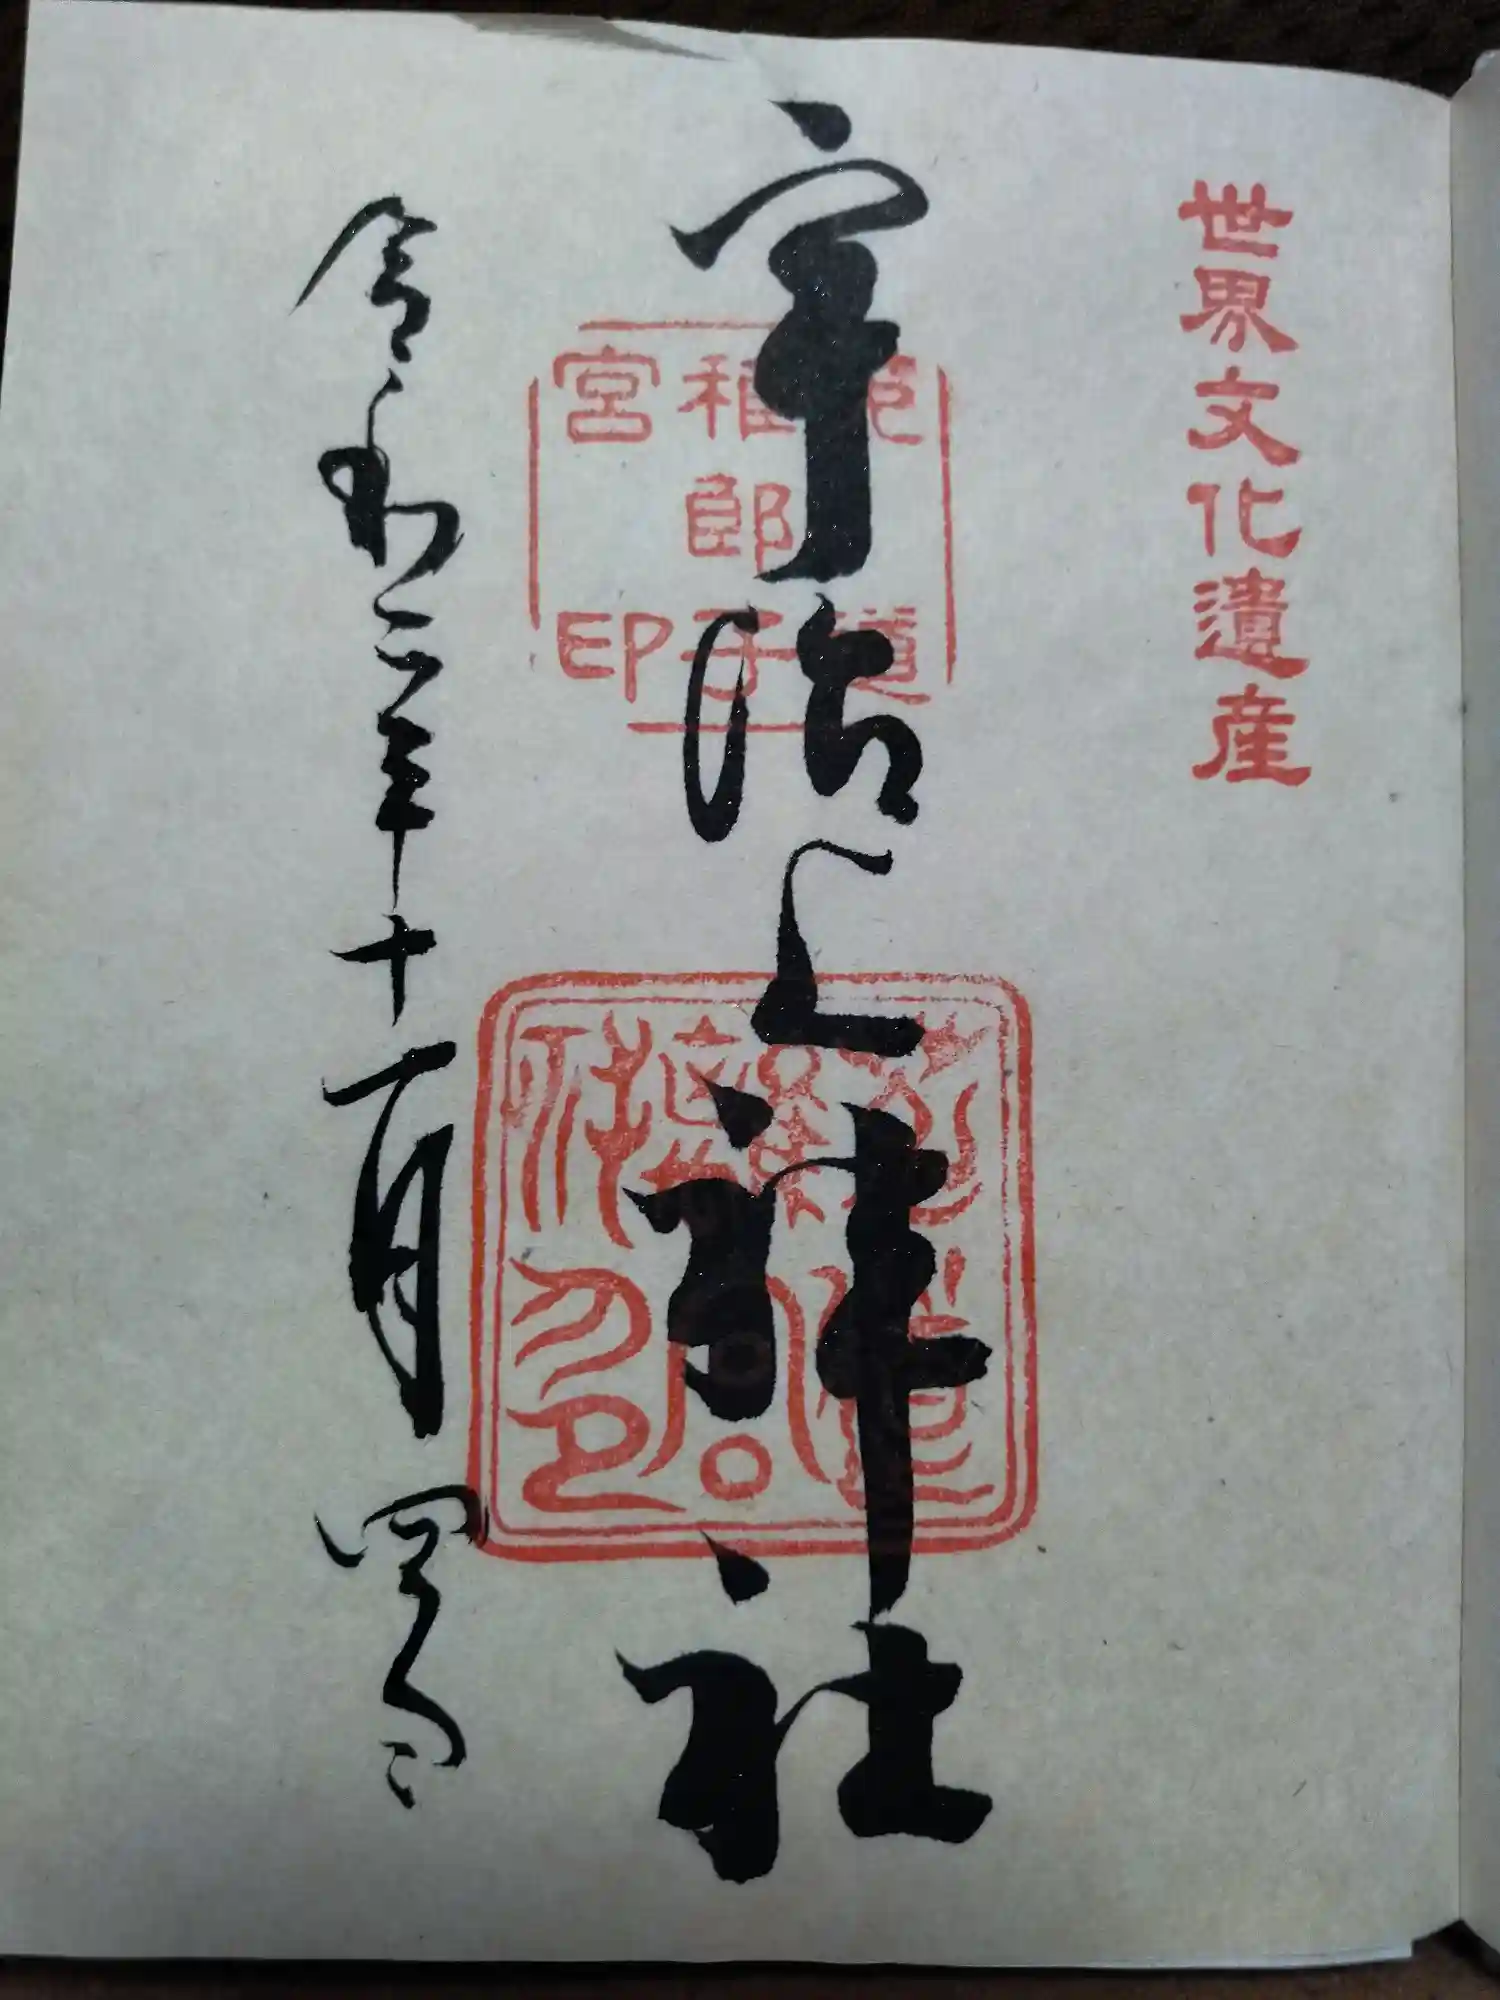 世界文化遺産
宇治上神社
菟道
稚郎子
宮印
令和二年十一月四日